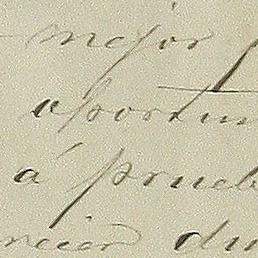 mejor
oportun
á prueb
recer du